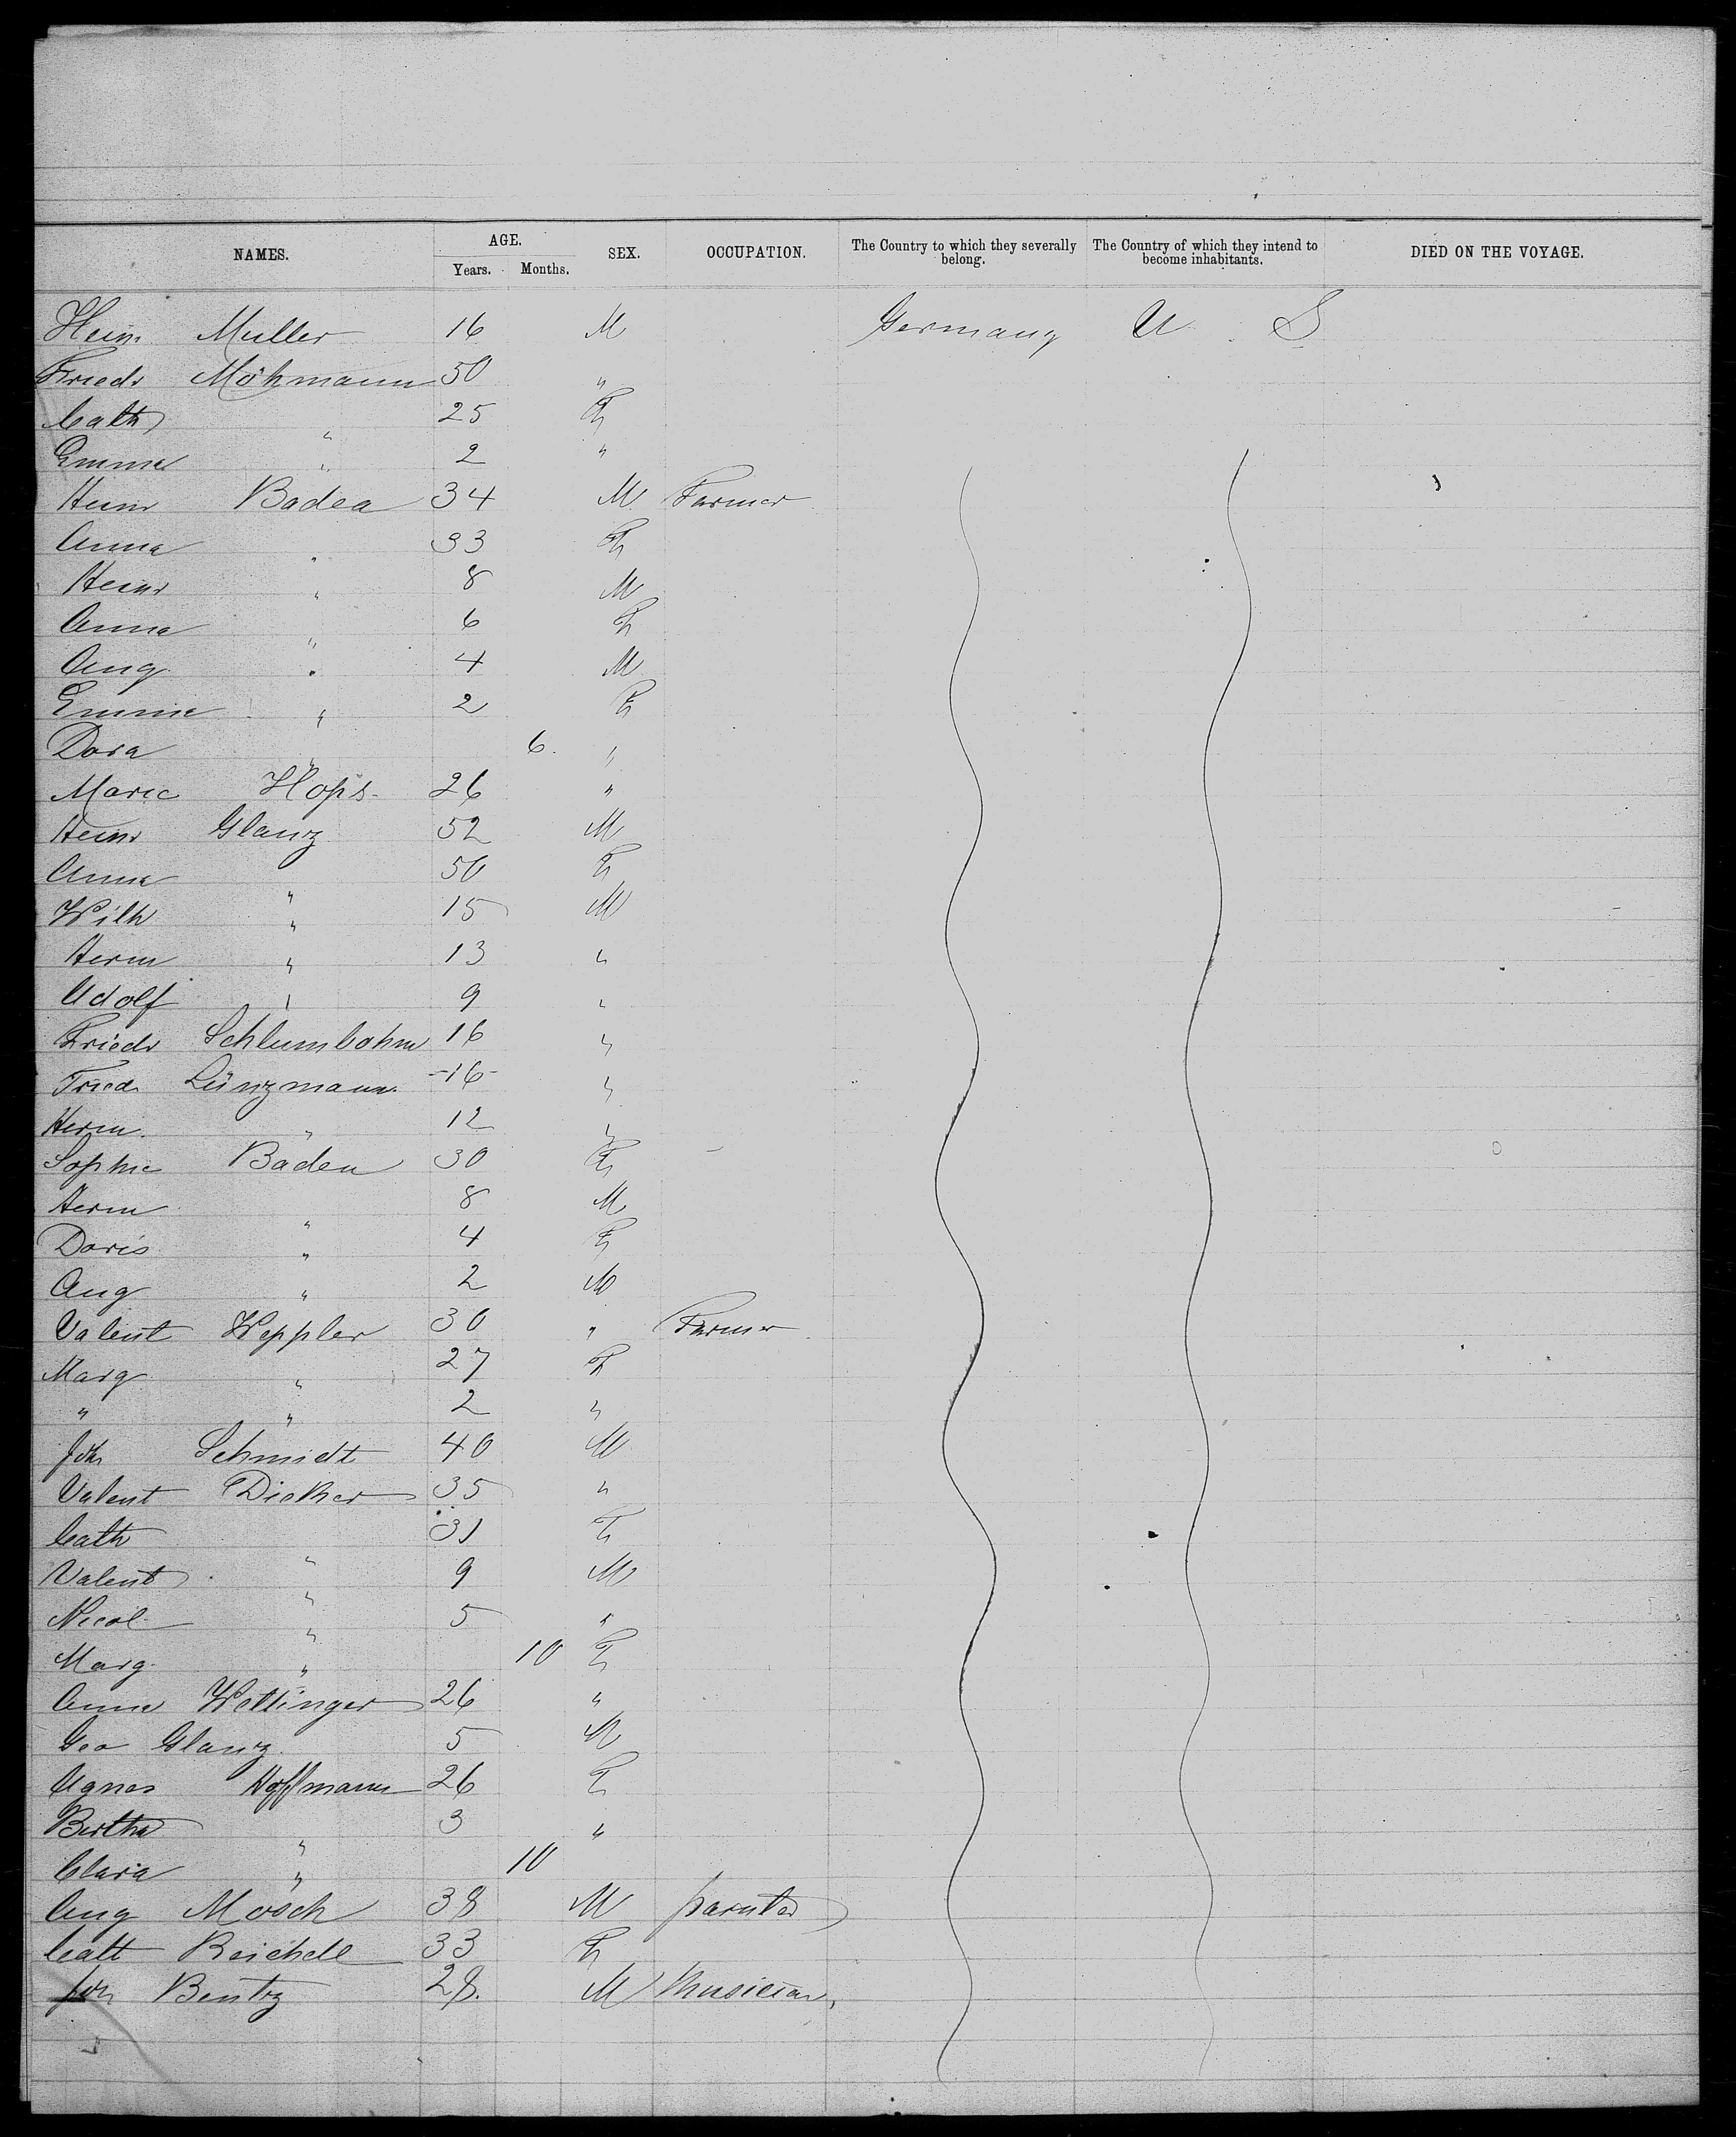 NAMES. AGE. Years. Months. SEX. OCCUPATION. The Country to which they severally belong. The Country of which they intend to become inhabitants. DIED ON THE VOYAGE.
Heinr Muller 16 M Germany U S
Friedr Möhmann 50 "
Cath " 25 F
Emma " 2 "
Heinr Baden 34 M Farmer
Anna " 33 F
Heinr " 8 M
Anna " 6 F
Aug " 4 M
Emma " 2 F
Dora " 6 "
Marie Höps 26 "
Heinr Glanz 52 M
Anna " 50 F
Wilh " 15 M
Herm " 13 "
Adolf " 9 "
Friedr Schlumbohm 16 "
Fried Lünzmann 16 "
Herm " 12 "
Sophie Baden 30 F
Herm " 8 M
Doris " 4 F
Aug " 2 M
Valent Heppler 30 " Farmer
Marg " 27 F
" " 2 "
Joh Schmidt 40 M
Valent Dicker 35 "
Cath " 31 F
Valent " 9 M
Nicol " 5 "
Marg " 10 F
Anna Wettinger 26 "
Geo Glanz 5 M
Agnes Hoffmann 26 F
Bertha " 3 "
Clara " 10
Aug Mosch 38 M painter
Cath Reichelt 33 F
Joh Bentz 28 M Musician